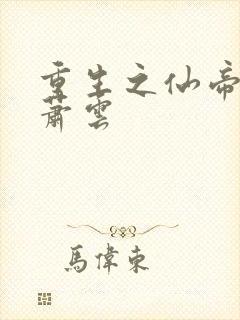 重生之仙帝
萧雲
馬偉東